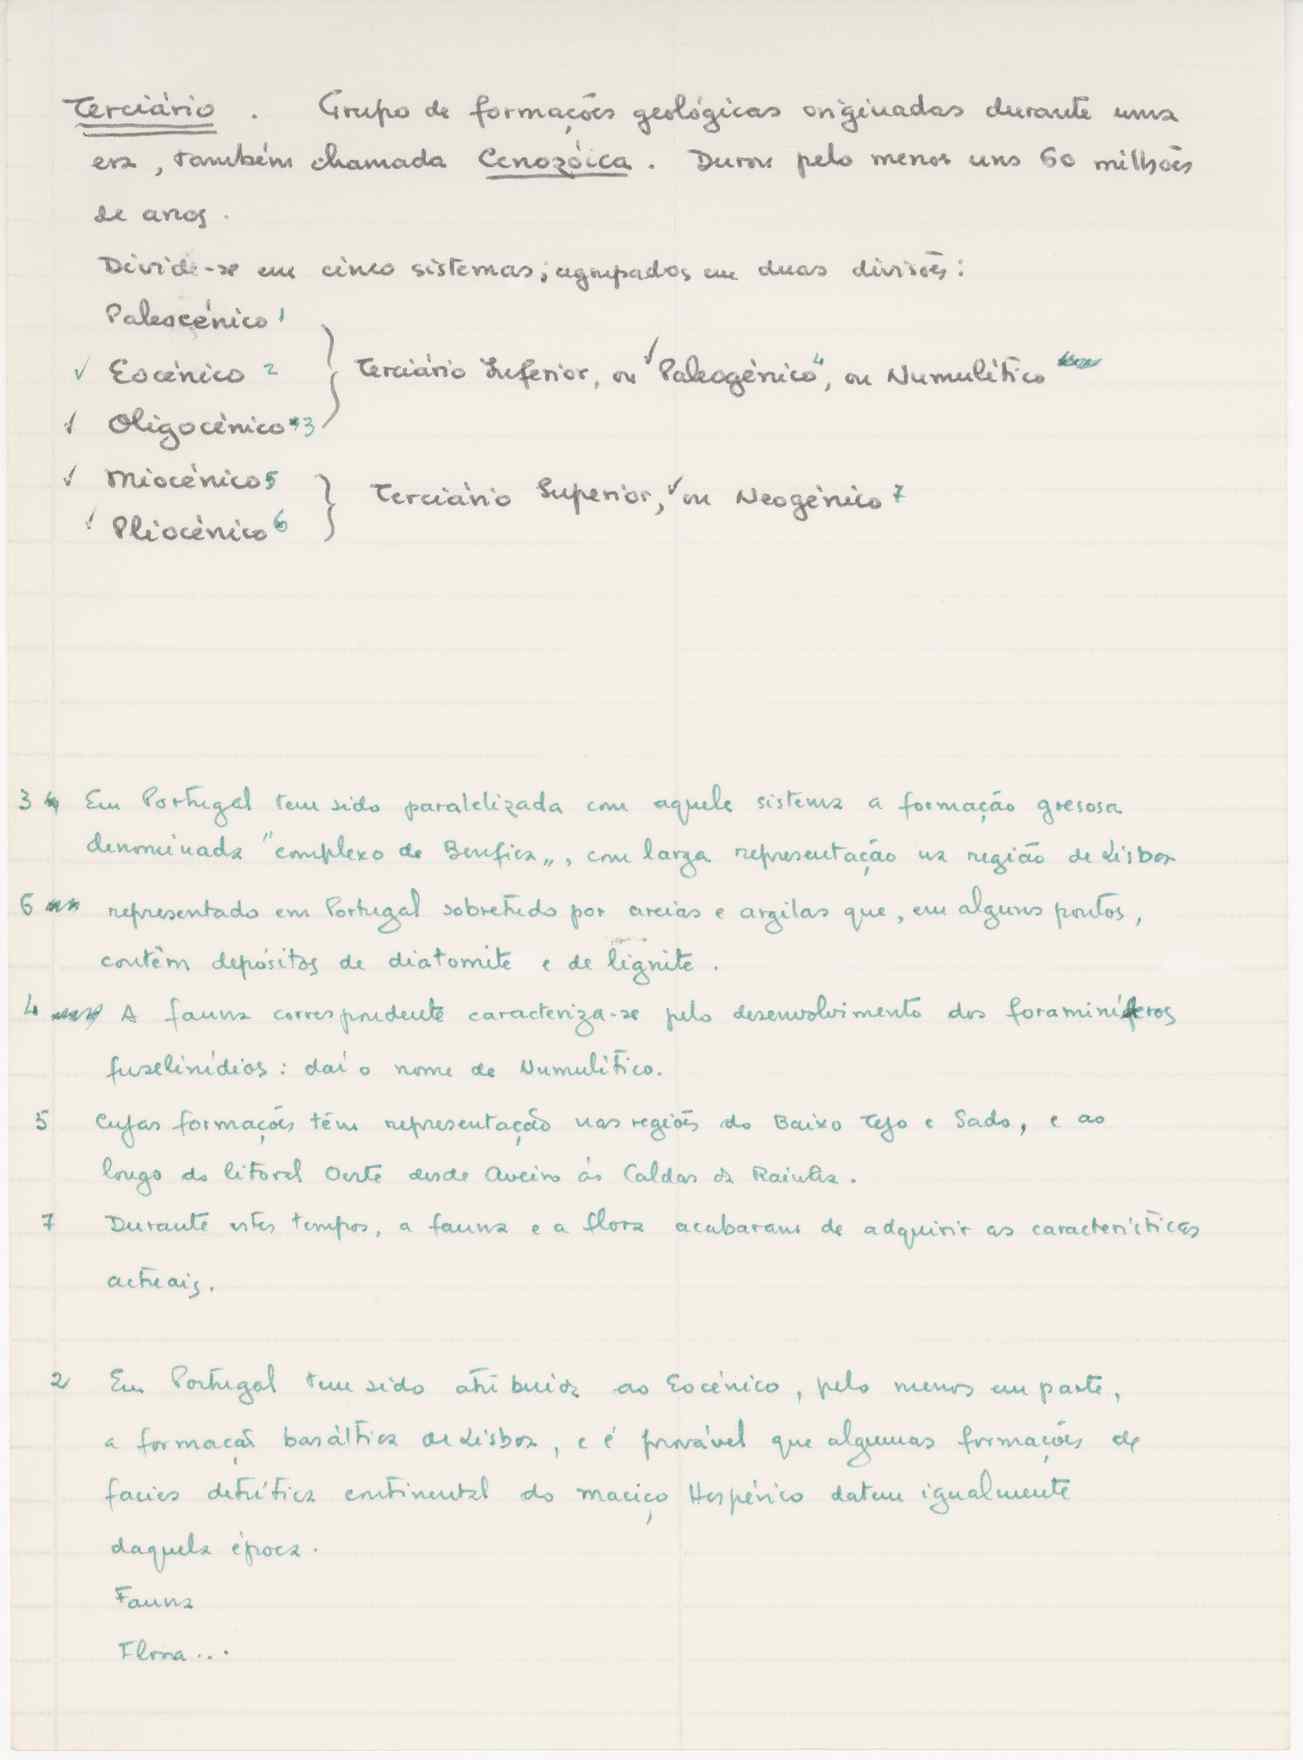 Terciário . Grupo de formações geológicas originadas durante uma
era, também chamada Cenozóica . Durou pelo menos uns 60 milhões
de anos .
Divide-se em cinco sistemas, agrupados em duas divisões :
Paleocénico 1
✓ Eocénico 2 } Terciário Inferior, ou ✓ Paleogénico 4, ou Numulítico
✓ Oligocénico 3
✓ Miocénico 5 } Terciário Superior, ✓ ou Neogénico 7
✓ Pliocénico 6
3 Em Portugal tem sido paralelizada com aquele sistema a formação gresosa
denominada "complexo de Benfica", com larga representação na região de Lisboa
6 representado em Portugal sobretudo por areias e argilas que, em alguns pontos,
contêm depósitos de diatomite e de lignite .
4 A fauna correspondente caracteriza-se pelo desenvolvimento dos foraminíferos
fuselinídios : daí o nome de Numulítico.
5 Cujas formações têm representação nas regiões do Baixo Tejo e Sado, e ao
longo do litoral Oeste desde Aveiro às Caldas da Rainha .
7 Durante estes tempos, a fauna e a flora acabaram de adquirir as características
actuais .
2 Em Portugal tem sido atribuida ao Eocénico, pelo menos em parte,
a formação basáltica de Lisboa, e é provável que algumas formações de
facies detrítica continental do maciço Hespérico datem igualmente
daquela época .
Fauna
Flora ...